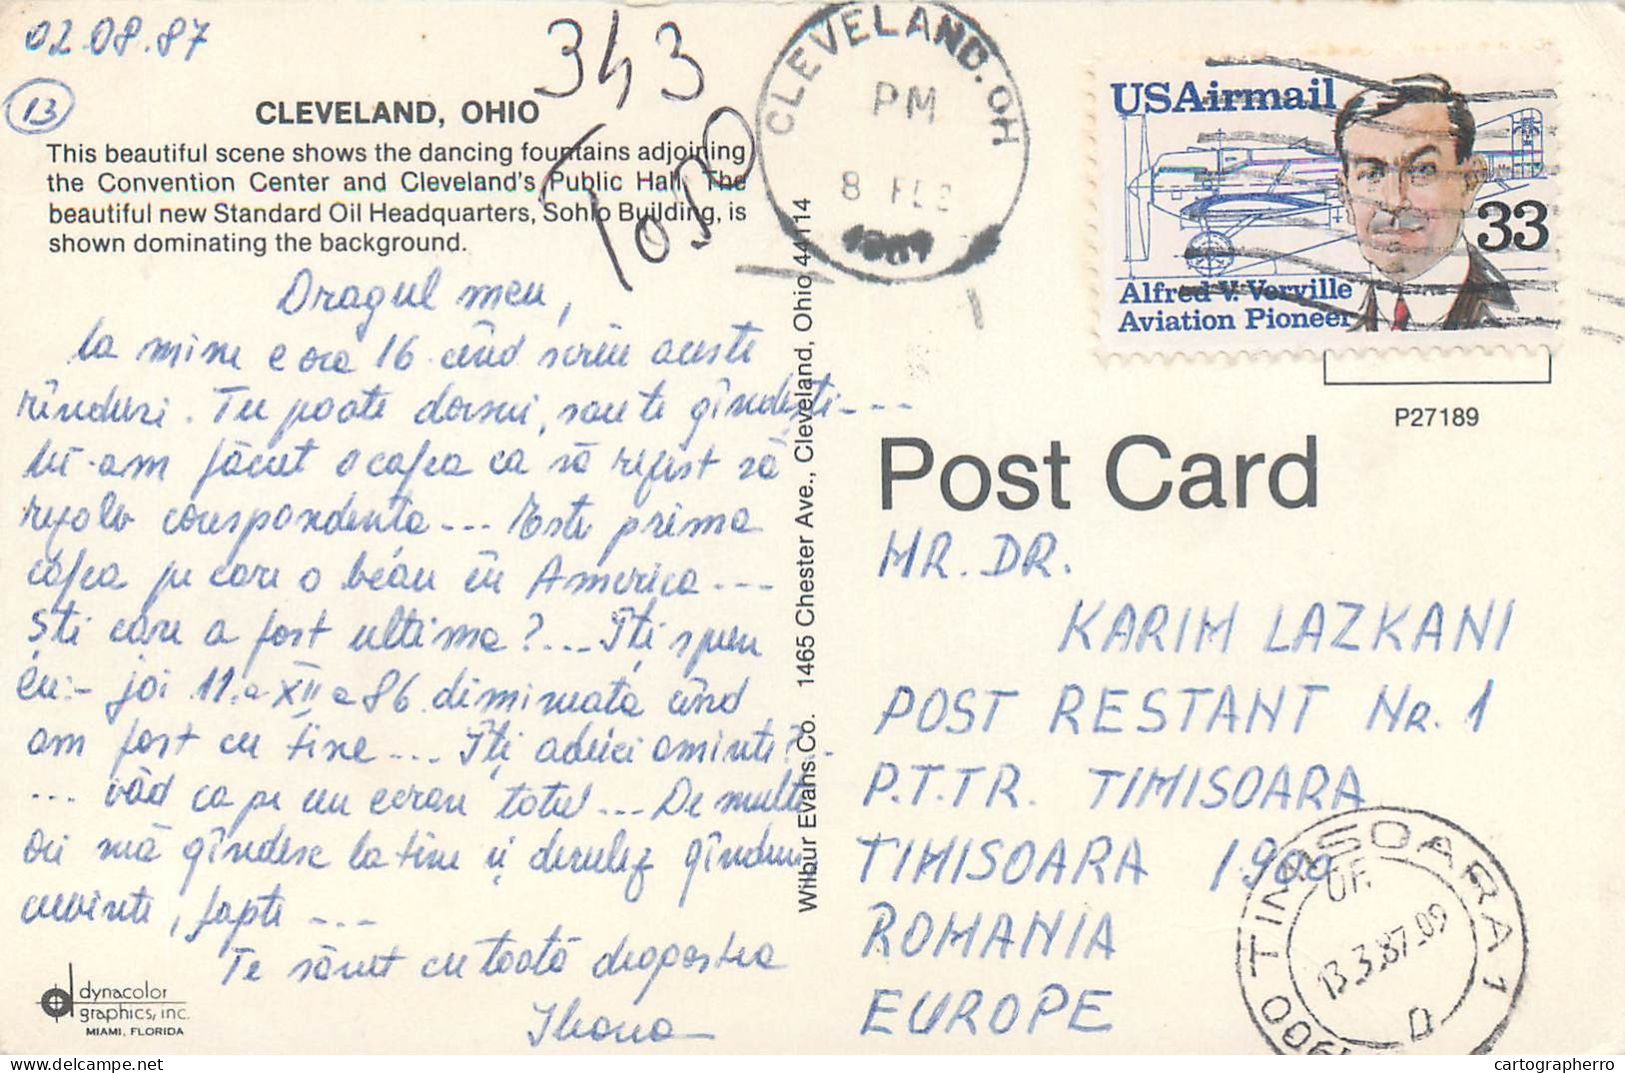 02.08.87
13
343
CLEVELAND, OHIO
This beautiful scene shows the dancing fountains adjoining
the Convention Center and Cleveland's Public Hall. The
beautiful new Standard Oil Headquarters, Sohio Building, is
shown dominating the background.
Dragul meu,
La mine e ora 16 când scriu aceste
rînduri. Tu poate dormi, sau te gîndești---
Mi-am făcut o cafea ca să rezist să
rezolv corespondenta --- Este prima
cafea pe care o beau în America ---
Ști care a fost ultima?... Iți spun
eu:- joi 11.XII 86 dimineata când
am fost cu tine ... Iți aduci aminte?..
... văd ca pe un ecran totul ... De multe
ori mă gîndesc la tine și derulez gînduri
cuvinte, fapte ---
Te sărut cu toată dragostea
Ileana
dynacolor
graphics, inc.
MIAMI, FLORIDA
Wilbur Evans Co. 1465 Chester Ave., Cleveland, Ohio 44114
CLEVELAND. OH
PM
8 FEB
1987
USAirmail
33
Alfred V. Verville
Aviation Pioneer
P27189
Post Card
MR. DR.
KARIM LAZKANI
POST RESTANT Nr. 1
P.T.T.R. TIMISOARA
TIMISOARA 1900
ROMANIA
EUROPE
1900 TIMISOARA 1
OF.
13.3.87.09
D
cartographerro